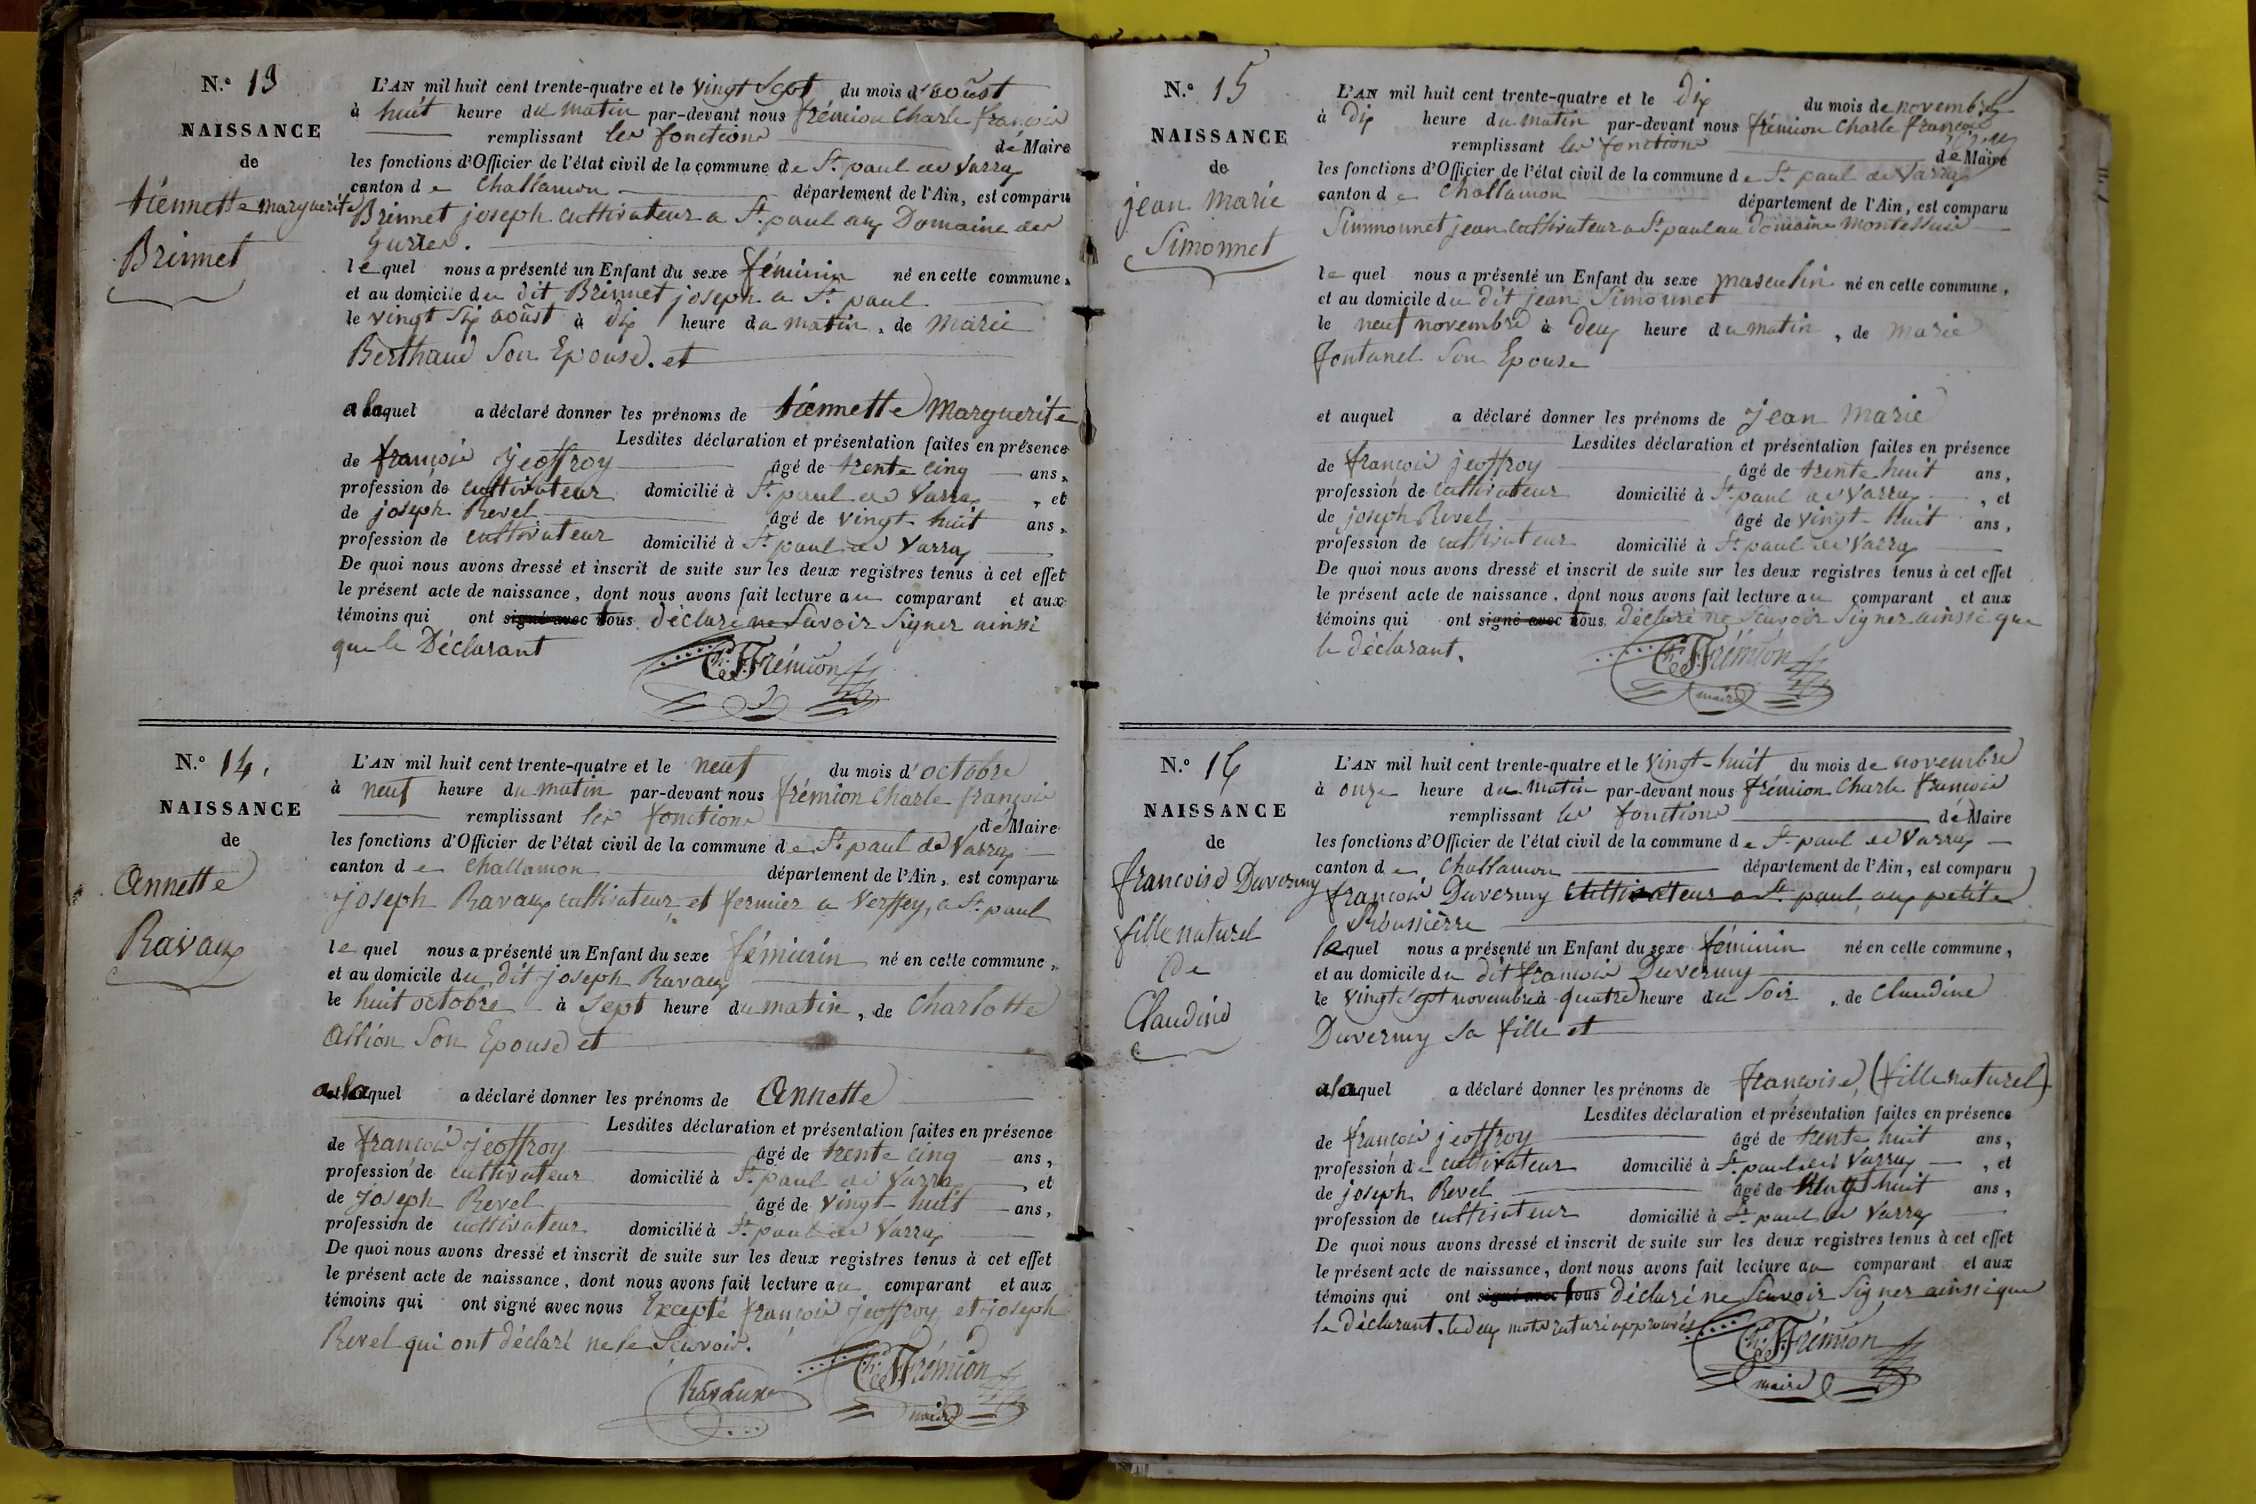 N.° 13
NAISSANCE
de
tiennette marguerite
Brinnet
L'AN mil huit cent trente-quatre et le vingt Sept du mois d'août
à huit heure du matin par-devant nous frémion Charle françois
remplissant les fonctions de Maire
les fonctions d'Officier de l'état civil de la commune de St paul de Varax
canton de Challamon département de l'Ain, est comparu
Brinnet joseph cultivateur a St paul au Domaine des
le quel nous a présenté un Enfant du sexe féminin né en cette commune,
et au domicile du dit Brinnet joseph a St paul
le vingt Six août à dix heure du matin, de Marie
Berthaud Son Epouse. et
a laquel a déclaré donner les prénoms de tiennette Marguerite
Lesdites déclaration et présentation faites en présence
de françois jeoffroy âgé de trente cinq ans,
profession de cultivateur domicilié à St paul de Varax, et
de joseph Revel âgé de vingt-huit ans,
profession de cultivateur domicilié à St paul de Varax
De quoi nous avons dressé et inscrit de suite sur les deux registres tenus à cet effet
le présent acte de naissance, dont nous avons fait lecture au comparant et aux
témoins qui ont signé avec tous déclaré ne Savoir Signer ainsi
que le Déclarant
Ch. F. Frémion
N.° 14.
NAISSANCE
de
Annette
Ravaux
L'AN mil huit cent trente-quatre et le neuf du mois d'octobre
à neuf heure du matin par-devant nous frémion Charle françois
remplissant les fonctions de Maire
les fonctions d'Officier de l'état civil de la commune de St paul de Varax
canton de Challamon département de l'Ain, est comparu
joseph Ravaux cultivateur et fermier a Verffey, a St paul
le quel nous a présenté un Enfant du sexe féminin né en cette commune,
et au domicile du dit joseph Ravaux
le huit octobre à Sept heure du matin, de Charlotte
Allion Son Epouse et
a laquel a déclaré donner les prénoms de Annette
Lesdites déclaration et présentation faites en présence
de françois jeoffroy âgé de trente cinq ans,
profession de cultivateur domicilié à St paul de Varax, et
de joseph Revel âgé de vingt-huit ans,
profession de cultivateur domicilié à St paul de Varax
De quoi nous avons dressé et inscrit de suite sur les deux registres tenus à cet effet
le présent acte de naissance, dont nous avons fait lecture au comparant et aux
témoins qui ont signé avec nous Excepté françois jeoffroy et joseph
Revel qui ont déclaré ne le Scavoir.
Ravaux
Ch. F. Frémion
maire
N.° 15
NAISSANCE
de
jean Marie
Simonnet
L'AN mil huit cent trente-quatre et le dix du mois de novembre
à dix heure du matin par-devant nous frémion Charle françois
remplissant les fonctions de Maire
les fonctions d'Officier de l'état civil de la commune de St paul de Varax
canton de Challamon département de l'Ain, est comparu
Simmounet jean Cultivateur a St paul au domaine Montessuis
le quel nous a présenté un Enfant du sexe masculin né en cette commune,
et au domicile du dit jean Simounet
le neuf novembre à deux heure du matin, de Marie
fontanel Son Epouse
et auquel a déclaré donner les prénoms de jean Marie
Lesdites déclaration et présentation faites en présence
de françois jeoffroy âgé de trente huit ans,
profession de cultivateur domicilié à St paul de Varax, et
de joseph Revel âgé de vingt-huit ans,
profession de cultivateur domicilié à St paul de Varax
De quoi nous avons dressé et inscrit de suite sur les deux registres tenus à cet effet
le présent acte de naissance, dont nous avons fait lecture au comparant et aux
témoins qui ont signé avec tous déclaré ne Scavoir Signer ainsie que
le déclarant.
Ch. F. Frémion
maire
N.° 16
NAISSANCE
de
francoise Duverny
fille naturel
de
Claudine
L'AN mil huit cent trente-quatre et le vingt-huit du mois de novembre
à onze heure du matin par-devant nous frémion Charle françois
remplissant les fonctions de Maire
les fonctions d'Officier de l'état civil de la commune de St paul de Varax
canton de Challamon département de l'Ain, est comparu
françois Duverny cultivateur a St paul aux petite
le quel nous a présenté un Enfant du sexe féminin né en cette commune,
et au domicile du dit françois Duverny
le vingt Sept novembre à quatre heure du Soir, de Claudine
Duverny Sa fille et
a laquel a déclaré donner les prénoms de françoise, (fille naturel)
Lesdites déclaration et présentation faites en présence
de françois jeoffroy âgé de trente huit ans,
profession de cultivateur domicilié à St paul de Varax, et
de joseph Revel âgé de vingt huit ans,
profession de cultivateur domicilié à St paul de Varax
De quoi nous avons dressé et inscrit de suite sur les deux registres tenus à cet effet
le présent acte de naissance, dont nous avons fait lecture au comparant et aux
témoins qui ont signé avec tous déclaré ne Scavoir Signer ainsi que
le déclarant. le deux mots raturé approuvés
Ch. F. Frémion
maire